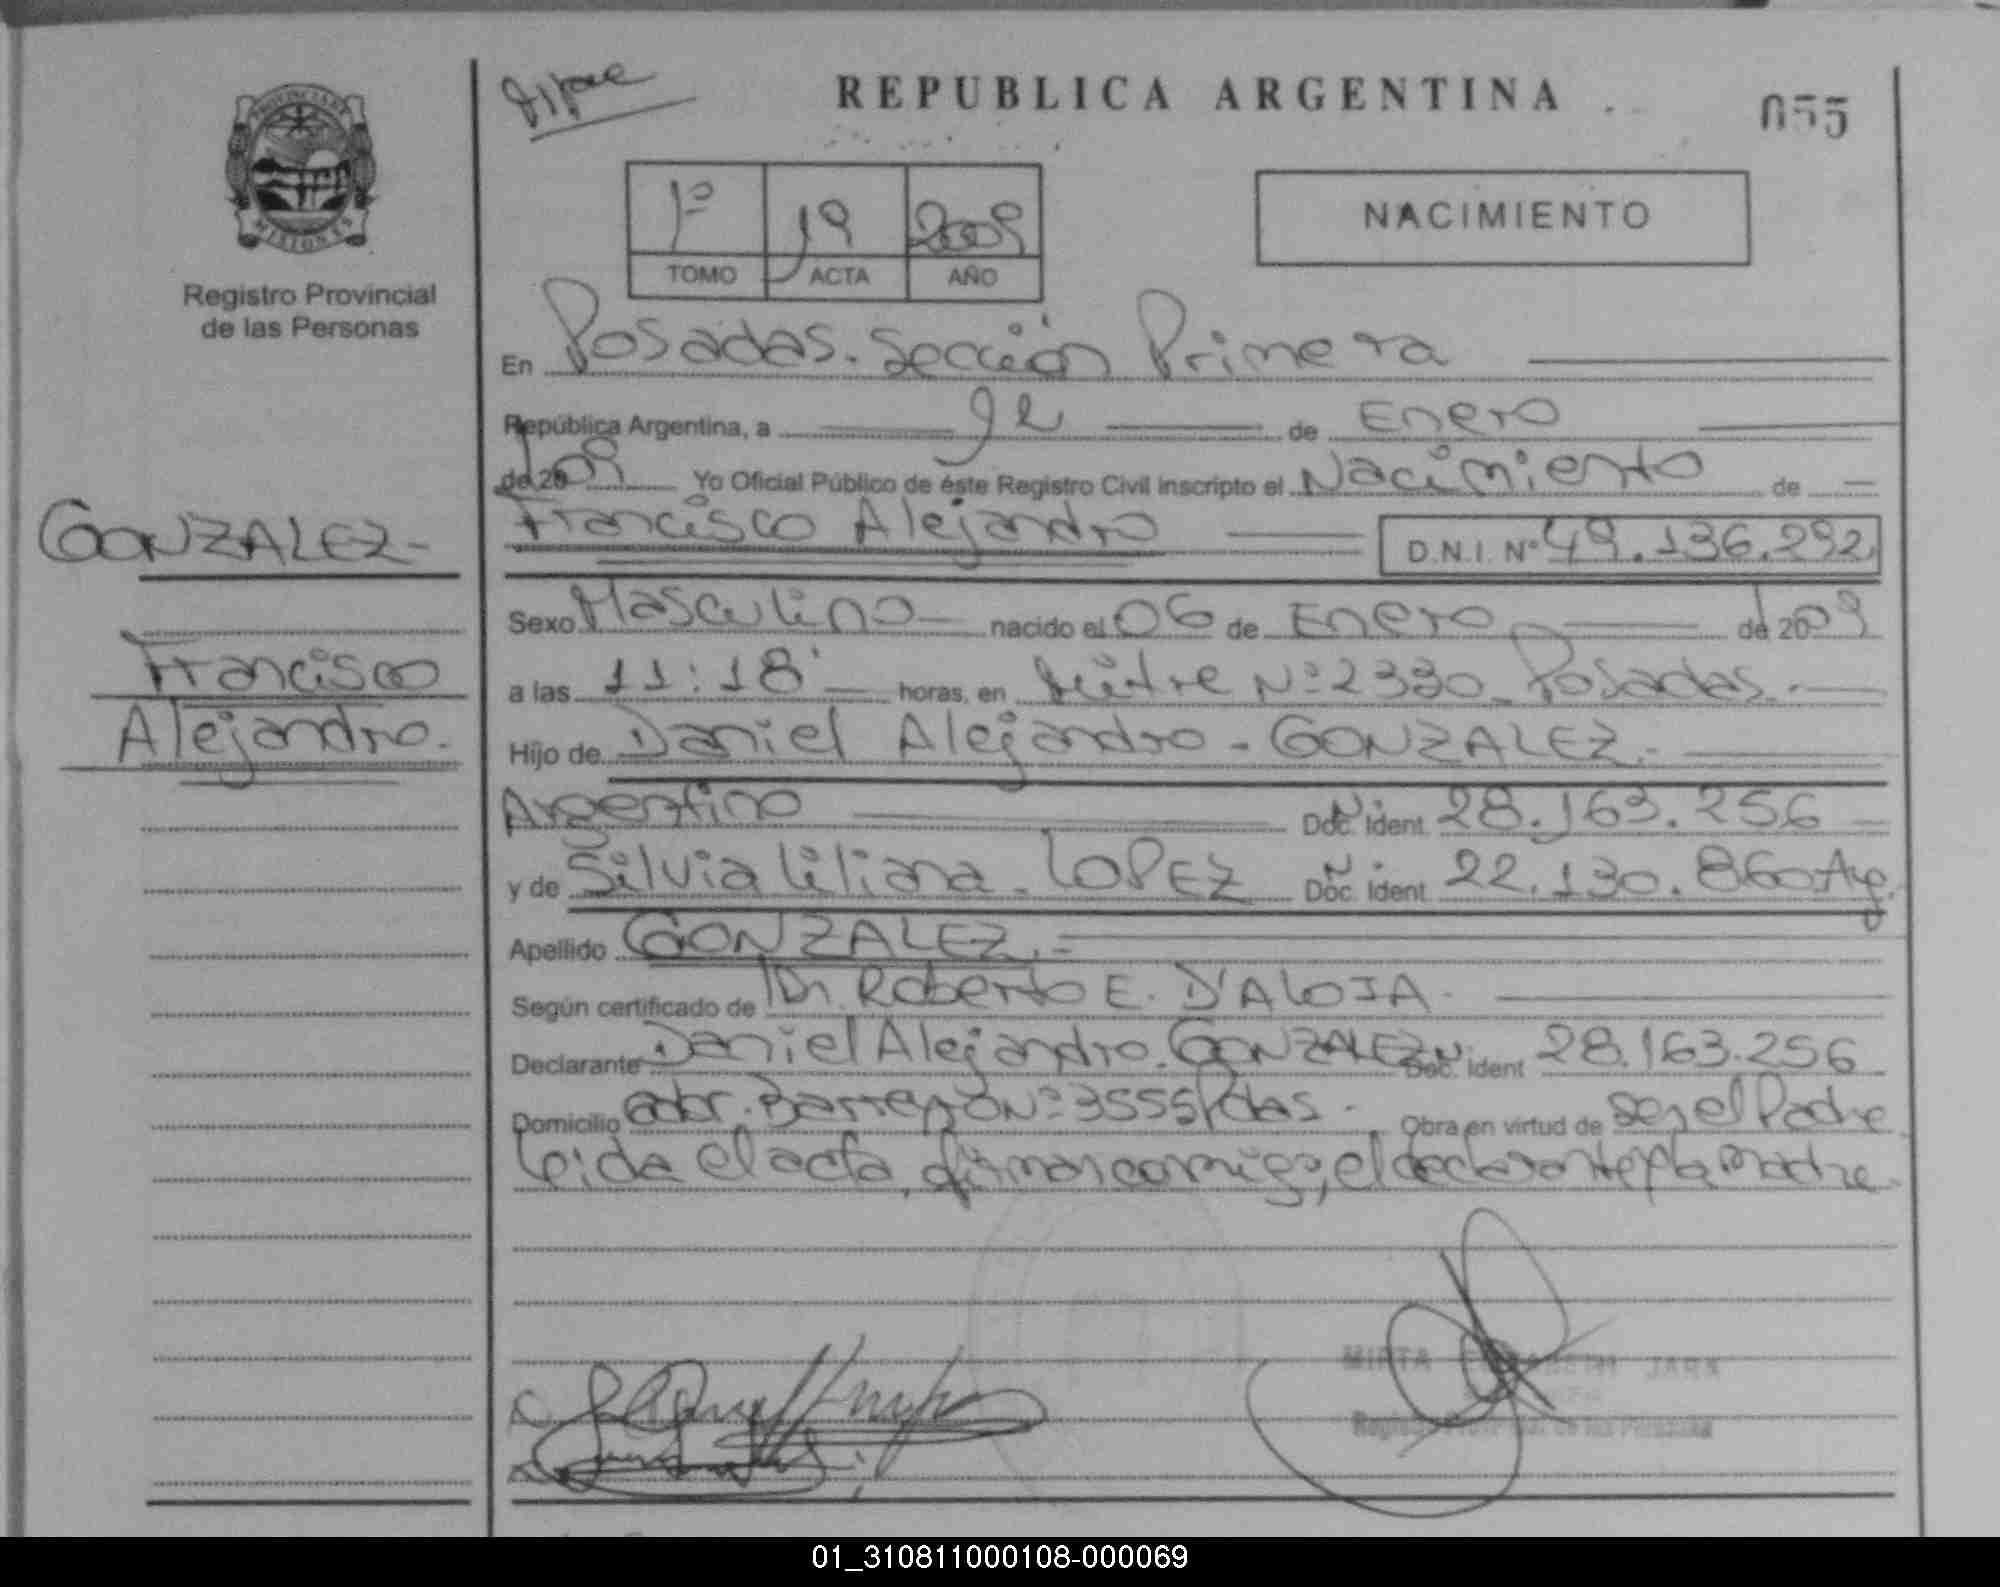 REPUBLICA ARGENTINA
055
PROVINCIA DE
MISIONES
Registro Provincial
de las Personas
1º 19 2009
TOMO ACTA AÑO
NACIMIENTO
En Posadas. Sección Primera
República Argentina, a de Enero
de 2009 Yo Oficial Público de éste Registro Civil inscripto el Nacimiento de
Francisco Alejandro D.N.I. Nº 49.136.292
GONZALEZ
Francisco
Alejandro.
Sexo Masculino nacido el 06 de Enero de 2009
a las 11:18' horas, en Mitre Nº 2330 Posadas.
Hijo de Daniel Alejandro - GONZALEZ.
Argentino Doc. Ident. 28.163.256
y de Silvia Liliana. LOPEZ Doc. Ident 22.130.860 Arg.
Apellido GONZALEZ.
Según certificado de Dr. Roberto E. D'ALOIA.
Declarante Daniel Alejandro. GONZALEZ Doc. Ident 28.163.256
Domicilio Nº 3555 Pdas. Obra en virtud de ser el Padre
Leida el acta, firman conmigo, el declarante y la madre
MIRTA JARA
01_310811000108-000069